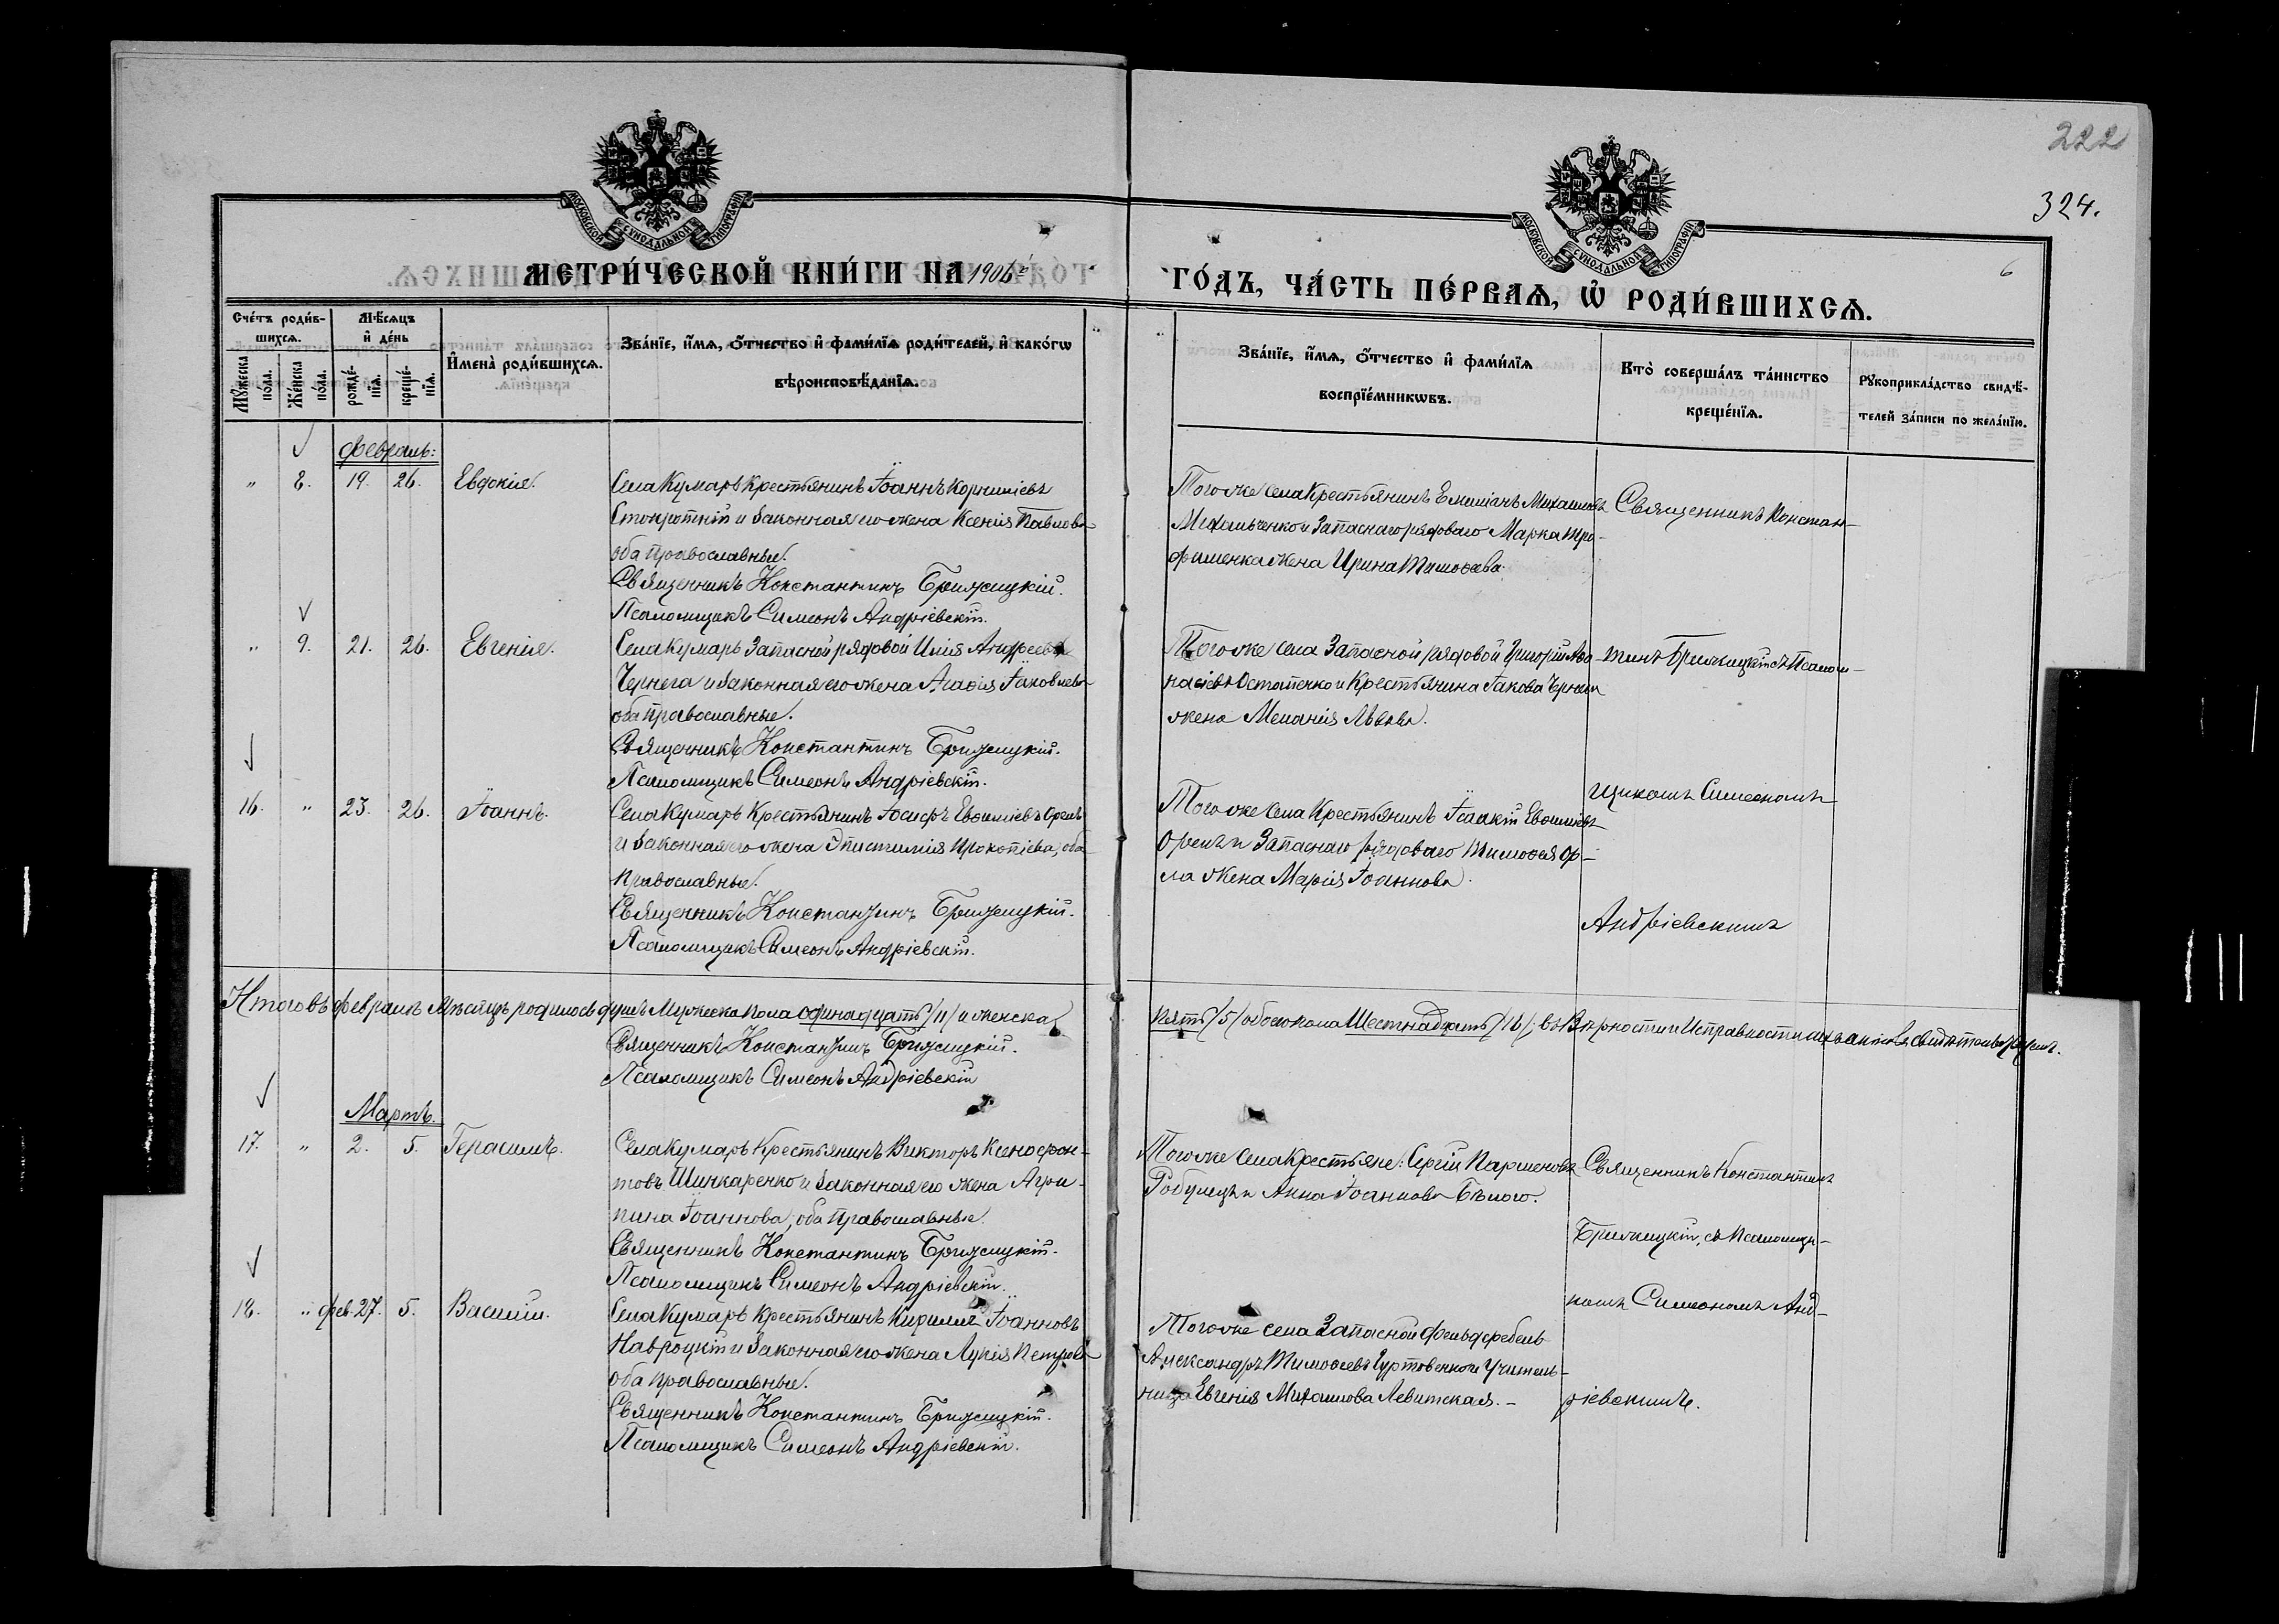 222
324.
6
МОСКОВСКОЙ СУНОДАЛЬНОЙ ТИПОГРАФІИ
МОСКОВСКОЙ СУНОДАЛЬНОЙ ТИПОГРАФІИ
МЕТРИ́ЧЕСКОЙ КНИ́ГИ НА 1906й
ГО́ДЪ, ЧА́СТЬ ПЕ́РВАѦ, Ѡ҆ РОДИ́ВШИХСѦ.
Сче́тъ роди́в-
шихсѧ.
Мѣ́сѧцъ
и҆ де́нь
Мꙋ́жеска
по́ла.
Же́нска
по́ла.
рожде́-
нїѧ.
креще́-
нїѧ.
И҆мена̀ роди́вшихсѧ.
Зва́нїе, и҆́мѧ, ѻ҆́тчество и҆ фами́лїѧ роди́телей, и҆ како́гѡ
вѣроисповѣ́данїѧ.
Зва́нїе, и҆́мѧ, ѻ҆́тчество и҆ фами́лїѧ
воспрїе́мникѡвъ.
Кто̀ соверша́лъ та́инство
креще́нїѧ.
Рꙋкоприкла́дство свидѣ́-
телей за́писи по жела́нїю.
Февраль:
" 8. 19. 26. Евдокія.
Села Кумарь Крестьянинъ Іоаннъ Корниліевъ
Стокроткій и законная его жена Ксенія Павлова
оба православные.
Священникъ Константинъ Брижицкій.
Псаломщикъ Симеонъ Андріевскій.
Того же села Крестьянинъ Емиліанъ Михаиловъ
Михальченко и Запаснаго рядоваго Марка Тро-
фименка жена Ирина Тимофеева.
Священникъ Констан-
" 9. 21. 26. Евгенія.
Села Кумарь Запасной рядовой Илія Андреевъ
Чернега и законная его жена Агафія Іаковлева
оба православные.
Священникъ Константинъ Брижицкій.
Псаломщикъ Симеонъ Андріевскій.
Того же села Запасной рядовой Григорій Аѳа-
насіевъ Остапенко и Крестьянина Іакова Чернеги
жена Меланія Львова.
тинъ Брижицкій съ Псалом-
16. " 23. 26. Іоаннъ.
Села Кумарь Крестьянинъ Іосифъ Евфиміевъ Орелъ
и законная его жена Епистимія Прокопіева, оба
православные.
Священникъ Константинъ Брижицкій.
Псаломщикъ Симеонъ Андріевскій.
Того же села Крестьянинъ Іоакій Евфиміевъ
Орелъ и Запаснаго рядоваго Тимофея Ор-
ла жена Марія Іоаннова.
щикомъ Симеономъ
Андріевскимъ
Итого въ февралѣ мѣсяцѣ родилось душъ Мужеска пола одинадцать /11/ и женска
пять /5/ обоего пола Шестнадцать /16/; въ Вѣрности и Исправности сихъ актовъ свидѣтельствуемъ.
Священникъ Константинъ Брижицкій.
Псаломщикъ Симеонъ Андріевскій
Мартъ.
17. " 2. 5. Герасимъ.
Села Кумарь Крестьянинъ Викторъ Ксенофон-
товъ Шинкаренко и законная его жена Агри-
пина Іоаннова, оба православные.
Священникъ Константинъ Брижицкій.
Псаломщикъ Симеонъ Андріевскій.
Того же села Крестьяне: Сергій Парменовъ
и Анна Іоаннова Бѣлого.
Священникъ Константинъ
Брижицкій, съ Псаломщи-
18. " фев. 27. 5. Василій.
Села Кумарь Крестьянинъ Кириллъ Іоанновъ
Навроцкій и законная его жена Лукія Петрова
оба православные.
Священникъ Константинъ Брижицкій.
Псаломщикъ Симеонъ Андріевскій.
Того же села Запасной фельдфебель
Александръ Тимофеевъ Гуртовенко и Учитель-
ница Евгенія Михаилова Левитская. -
комъ Симеономъ Анд-
ріевскимъ.